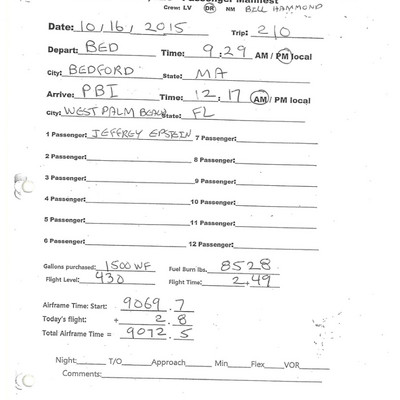 Passenger Manifest
Crew: LV DR NM BELL HAMMOND
Date: 10/16/2015 Trip: 210
Depart: BED Time: 9:29 AM / PM local
City: BEDFORD State: MA
Arrive: PBI Time: 12:17 AM / PM local
City: WEST PALM BEACH State: FL
1 Passenger: JEFFREY EPSTEIN 7 Passenger:
2 Passenger: 8 Passenger:
3 Passenger: 9 Passenger:
4 Passenger: 10 Passenger:
5 Passenger: 11 Passenger:
6 Passenger: 12 Passenger:
Gallons purchased: 1500 WF Fuel Burn lbs. 8528
Flight Level: 430 Flight Time: 2+49
Airframe Time: Start: 9069.7
Today's flight: + 2.8
Total Airframe Time = 9072.5
Night: T/O Approach Min Flex VOR
Comments: